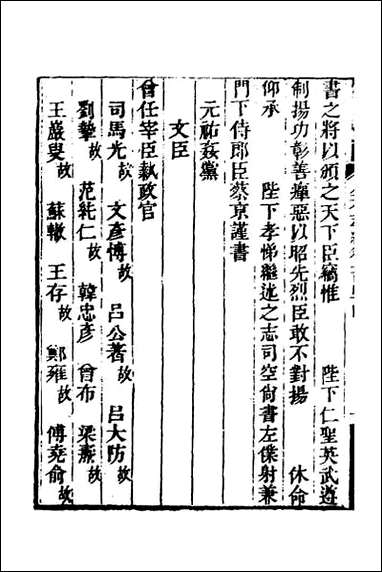 書之將以頒之天下臣竊惟　陛下仁聖英武遵
制揚功彰善癉惡以昭先烈臣敢不對揚　休命
仰承　陛下孝悌繼述之志司空尙書左僕射兼
門下侍郎臣蔡京謹書
元祐姦黨
文臣
曾任宰臣執政官
司馬光故　文彥博故　呂公著故　呂大防故
劉摯故　范純仁故　韓忠彥　曾布　梁燾故
王巖叟故　蘇轍　王存故　鄭雍故　傅堯俞故